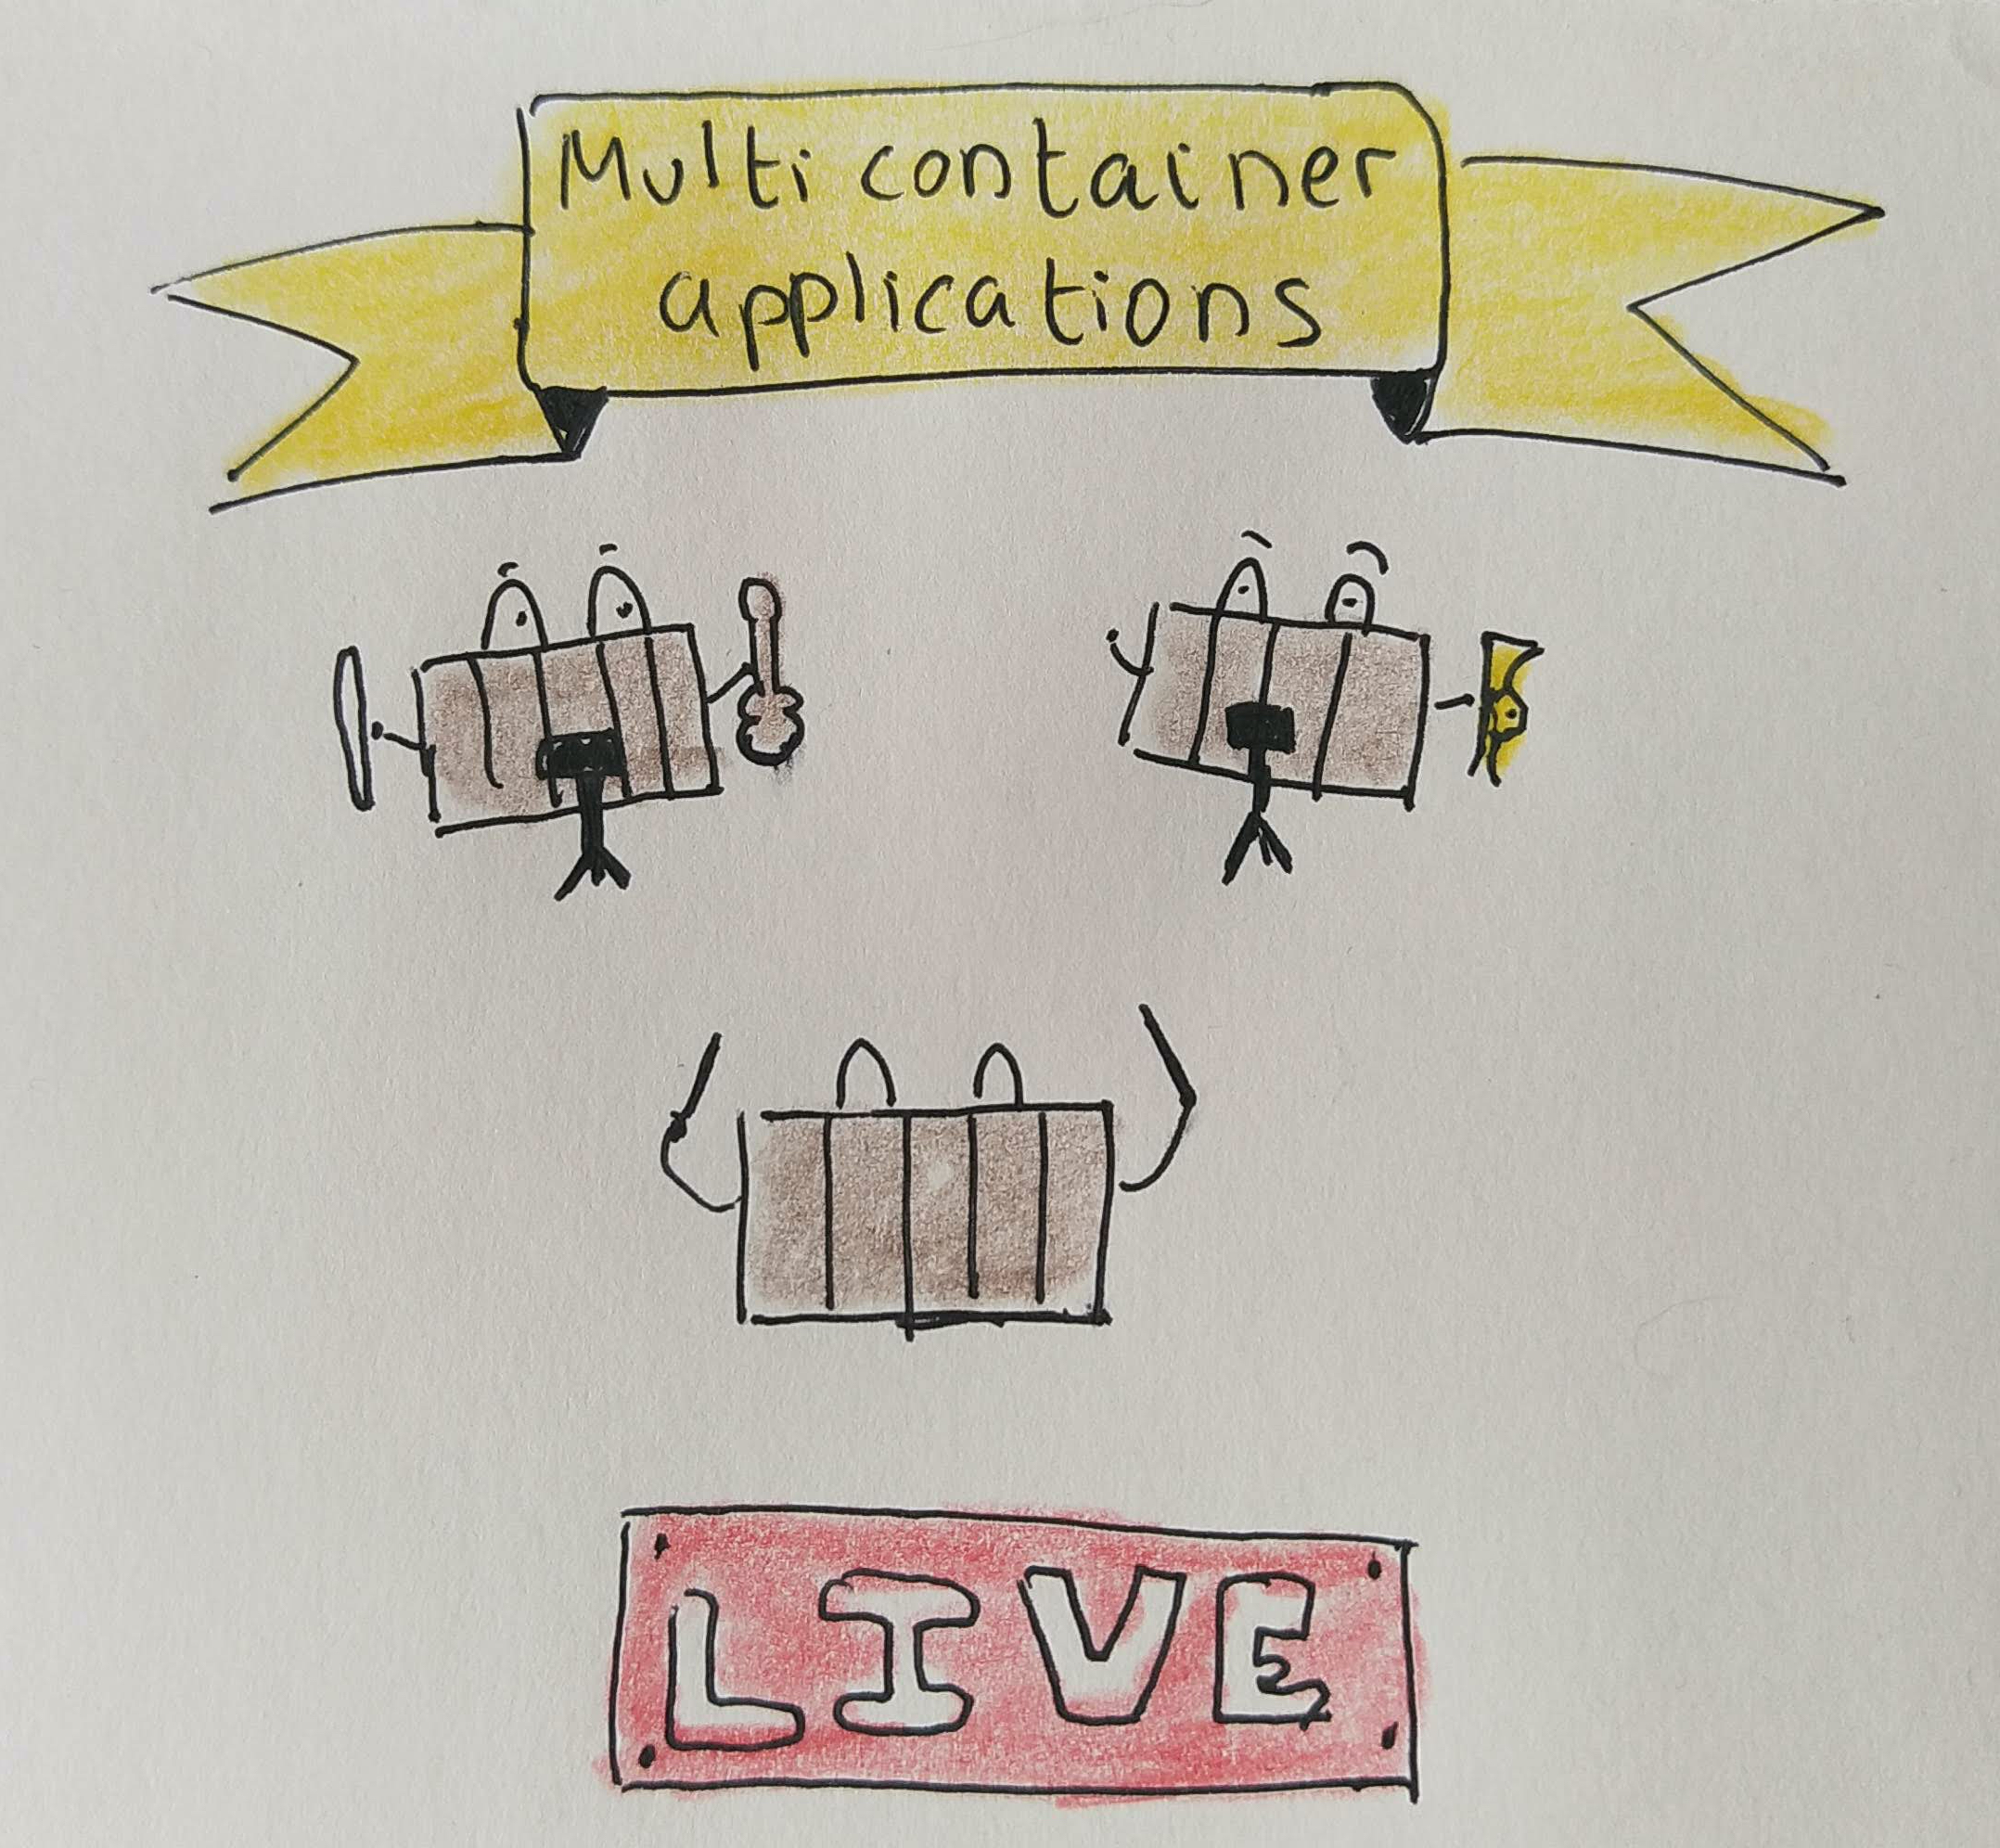 Multi container
applications
LIVE